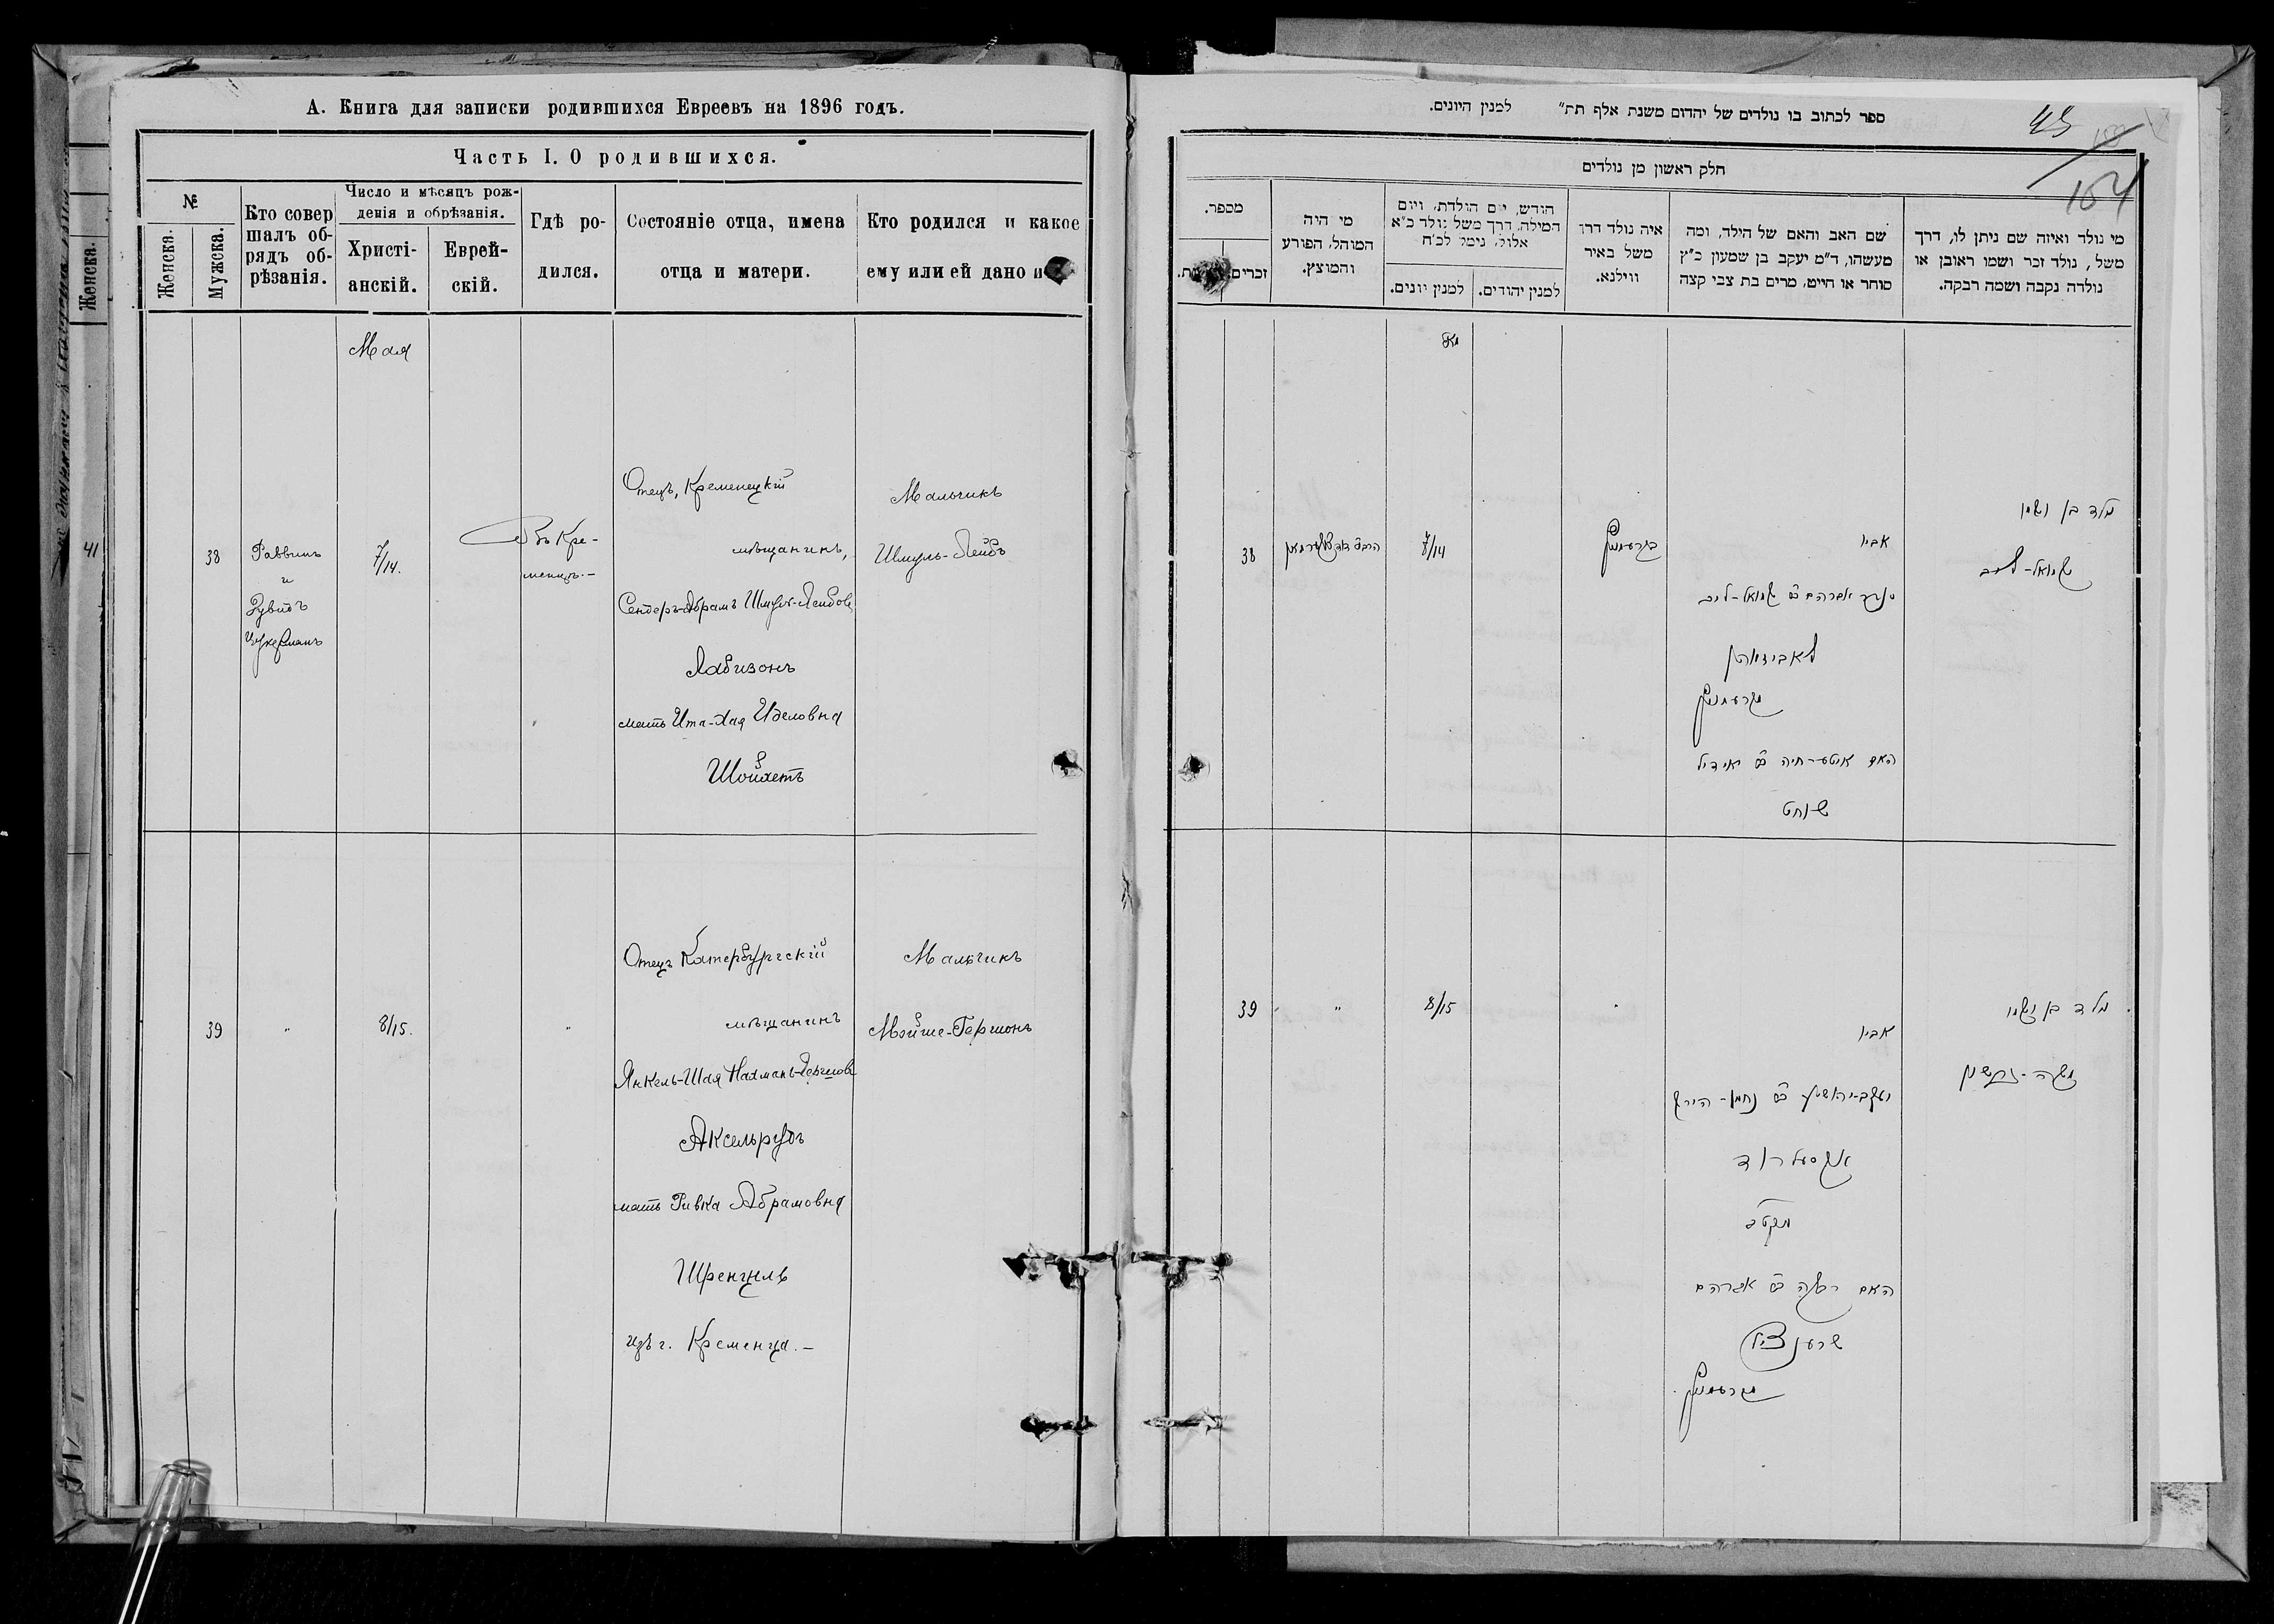 А. Книга для записки родившихся Евреевъ на 1896 годъ.
Часть I. О родившихся.
№
Женска.
Мужска.
Кто совер
шалъ об-
рядъ об-
рѣзанія.
Число и мѣсяцъ рож-
денія и обрѣзанія.
Христі-
анскій.
Еврей-
скій.
Гдѣ ро-
дился.
Состояніе отца, имена
отца и матери.
Кто родился и какое
ему или ей дано
Женска.
41
Мая
38
Раввинъ
и
Дувидъ
Цукерманъ
7/14.
Въ Кре-
менцѣ.—
Отецъ, Кременецкій
мѣщанинъ,
Сендеръ-Абрамъ Шмуль-Лейбовъ
Лабизонъ
мать Ита-Хая Иделовна
Шойхетъ
Мальчикъ
Шмуль-Лейбъ
39
"
8/15.
"
Отецъ Катербургскій
мѣщанинъ
Янкель-Шая Нахманъ-Гершовъ
Аксельрудъ
мать Ривка Абрамовна
Шренцель
изъ г. Кременца.—
Мальчикъ
Мойше-Гершонъ
ספר לכתוב בו נולדים של יהדום משנת אלף תת״ למנין היונים.
45
164
חלק ראשון מן נולדים
מספר.
זכרים.
מי היה
המוהל, הפורע
והמוצץ.
הודש, יום הולדת, ויום
המילה, דרך משל נולד כ״א
אלול, נימל לכ״ח
למנין יונים.
למנין יהודים.
איה נולד דרך
משל באיר
ווילנא.
שם האב והאם של הילד, ומה
מעשהו, ד״מ יעקב בן שמעון כ״ץ
סוחר או חייט, מרים בת צבי קצה
מי נולד ואיזה שם ניתן לו, דרך
משל, נולד זכר ושמו ראובן או
נולדה נקבה ושמה רבקה.
מאי
38
7/14
בקרעמניץ
אביו
סנדר אברהם ב״ר שמואל-ליב
לאביזאהן
מקרעמניץ
האם איטע-חיה ב״ר אידיל
שוחט
נולד בן ושמו
שמואל-ליב
39
"
8/15
"
אביו
יעקב-יהושע ב״ר נחמן-הירש
אקסעלרוד
האם רבקה ב״ר אברהם
שרענציל
מקרעמניץ
נולד בן ושמו
משה-גרשון